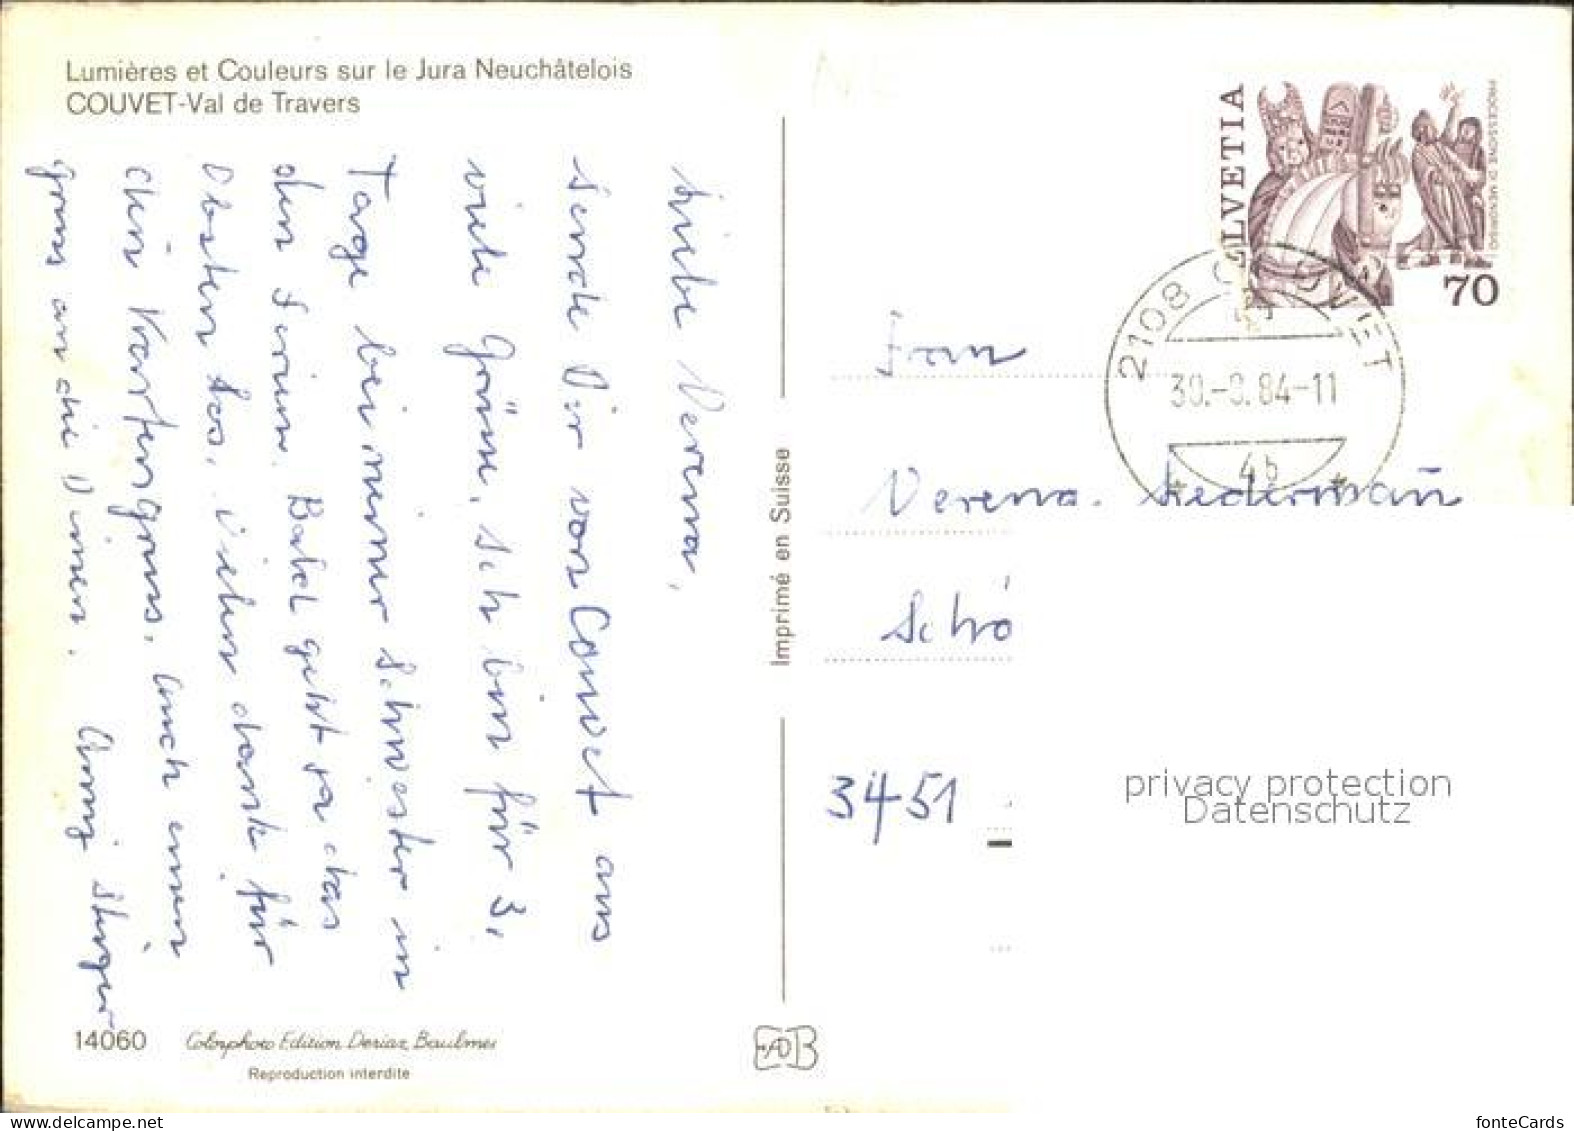 Lumières et Couleurs sur le Jura Neuchâtelois
COUVET-Val de Travers
Liebe Verena,
sende Dir von Couvet aus
viele Grüsse. Ich bin für 3,
Tage bei meiner Schwester in
den Ferien. Babel geht ja das
Obsten los, vielen dank für
dein Kartengruss. Auch einen
gruss an die Deinen. Anny
Imprimé en Suisse
HELVETIA
PROCESSIONE DI MENDRISIO
70
2108 COUVET
30.-8.84-11
Frau
Verena Liedermann
Schö
3451
privacy protection
Datenschutz
14060
Colorphoto Edition Deriaz, Baulmes
Reproduction interdite
fonteCards